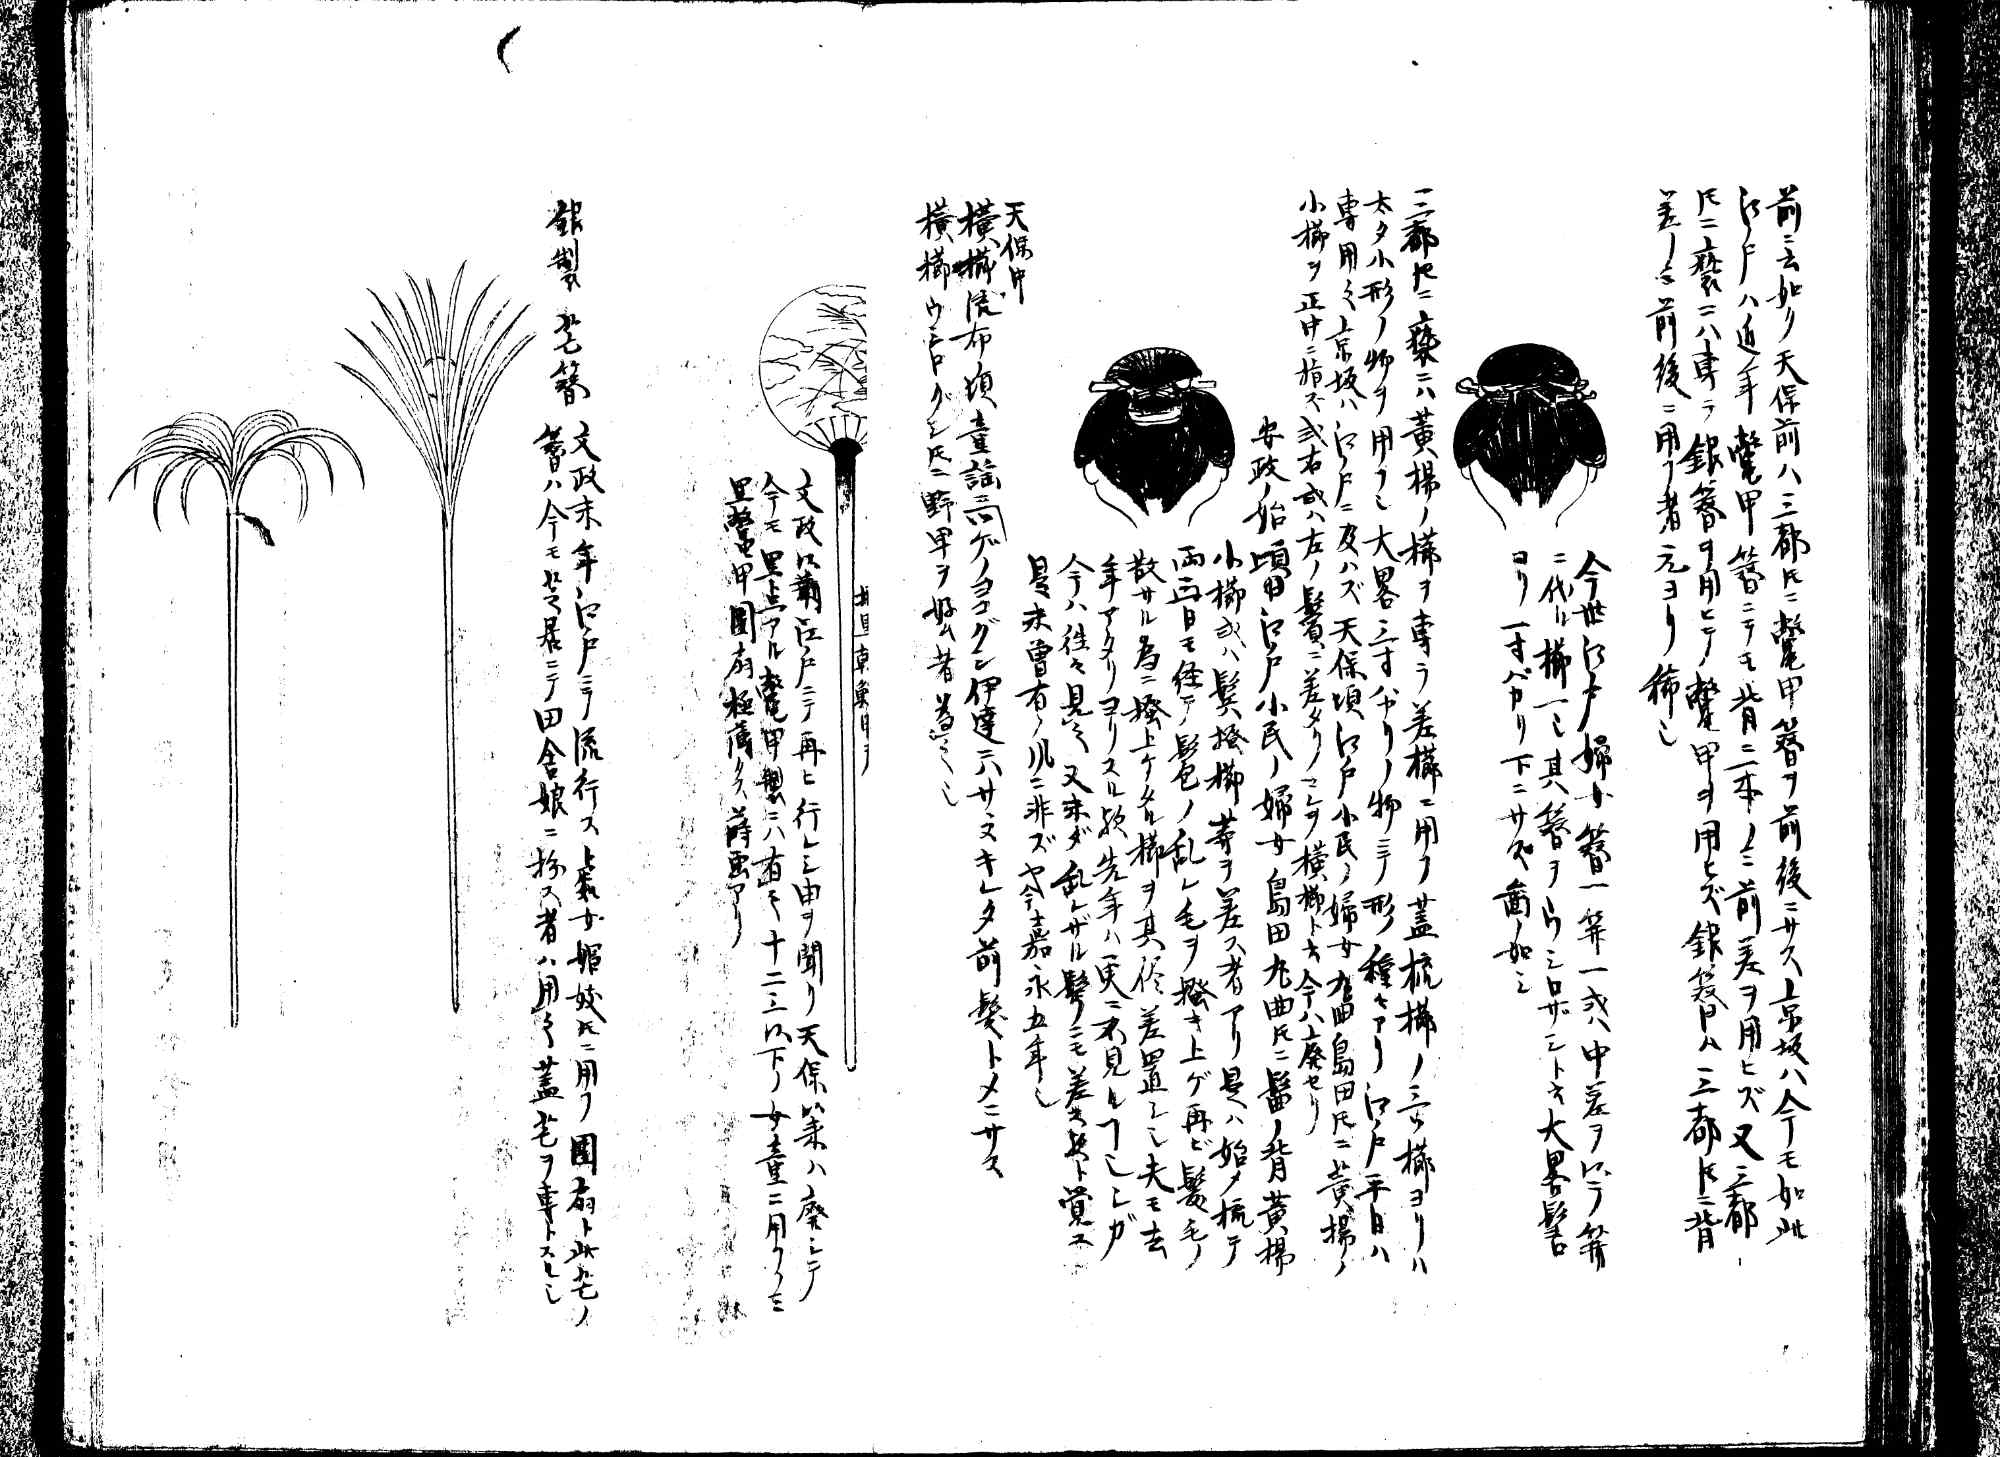 前ニ云如ク天保前ハ三都トモニ鼈甲簪ヲ前後ニサス京坂ハ今モ如此
江戸ハ近年鼈甲簪ニテモ背ニ本ノミ前差ヲ用ヒズ又三都
トモニ褻ニハ専ラ銀簪ヲ用ヒテ鼈甲ヲ用ヒズ銀簪ハ三都トモニ背
差ノミ前後ニ用フ者元ヨリ稀也
今世江戸婦女簪一笄一或ハ中差ヲ以テ笄
ニ代ル櫛一也其簪ヲウシロザシト云大略髻
ヨリ一寸バカリ下ニサス図ノ如シ
三都トモニ褻ニハ黄楊ノ櫛ヲ専ラ差櫛ニ用フ蓋梳櫛ノ三ツ櫛ヨリハ
太タ小形ノ物ヲ用フ也大略三寸バカリノ物ニテ形種々アリ江戸平日ハ
専用之京坂ハ江戸ニ及ハズ天保頃江戸小民ノ婦女丸曲島田トモニ黄楊ノ
小櫛ヲ正中ニ指ズ或右或ハ左ノ鬢ニ差タリコレヲ横櫛ト云今ハ廃セリ
安政ノ始頃江戸小民ノ婦女島田丸曲トモニ髷ノ背黄楊
小櫛或ハ鬢掻櫛等ヲ差ス者アリ是ハ始メ梳テ
両三日モ経テ髱ノ乱レ毛ヲ掻キ上ゲ再ビ髪毛ノ
散サル為ニ掻上ケタル櫛ヲ其侭差置シ也夫モ去
年アタリヨリスル歟先年ハ更ニ不見ルコト也シガ
今ハ往々見之又未ダ乱レザル髩ニモ差之歟ト覚ス
是未曽有ノ風ニ非ズヤ今嘉永五年也
天保中
横櫛流布ノ頃童謡ニ ゲノヨコグシ伊達ニハサヽヌキレタ前髪トメニサス
横櫛ウシログシトモニ野卑ヲ好ム者為之也
文政以前江戸ニテ再ヒ行レシ由ヲ聞リ天保以来ハ廃シテ
今モ黒点アル鼈甲製ニハ有之十二三以下ノ女童ニ用フノミ
黒鼈甲團扇極薄クス蒔画アリ
銀製芒簪
文政末年江戸ニテ流行ス上輩女媚妓トモニ用フ團扇ト此芒ノ
簪ハ今モ芝居ニテ田舎娘ニ扮ス者ハ用之蓋芒ヲ専トスル也